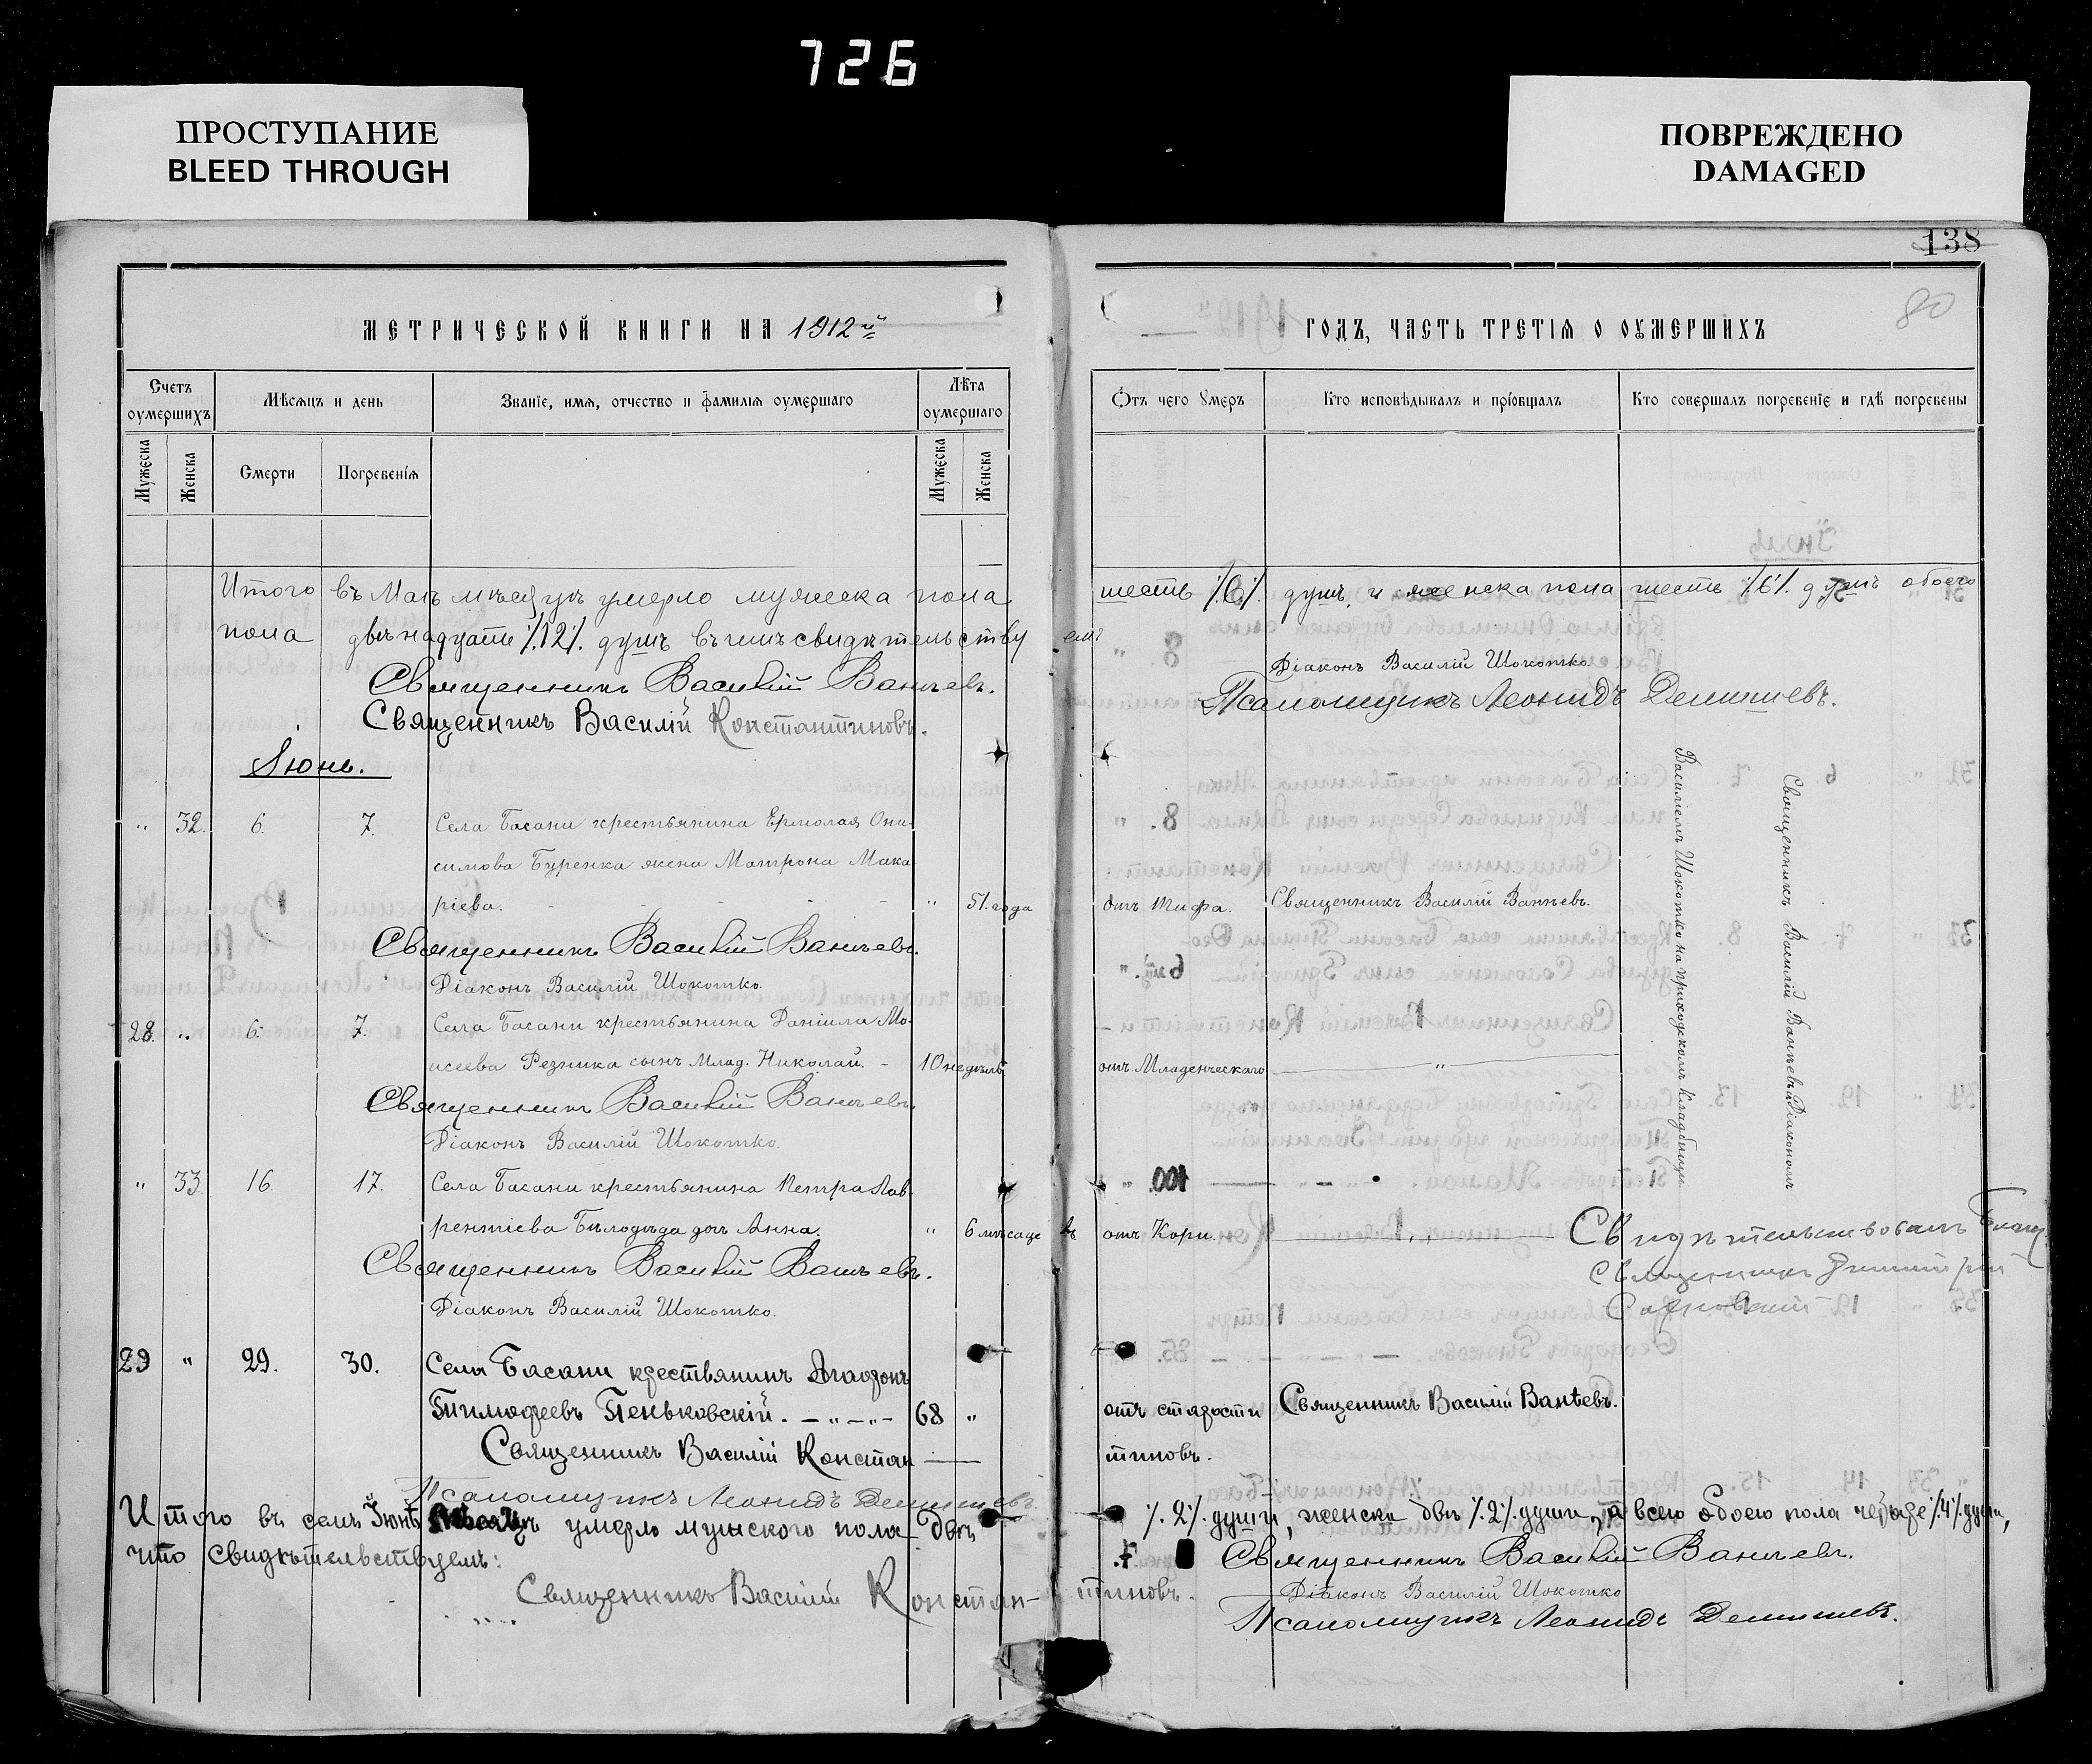 726
ПРОСТУПАНИЕ
BLEED THROUGH
ПОВРЕЖДЕНО
DAMAGED
138
80
МЕТРИЧЕСКОЙ КНИГИ НА 1912й
ГОДЪ, ЧАСТЬ ТРЕТІЯ О ОУМЕРШИХЪ
Счетъ оумершихъ
Мѣсяцъ и день
Званіе, имя, отчество и фамилія оумершаго
Лѣта оумершаго
Отъ чего умеръ
Кто исповѣдывалъ и пріобщалъ
Кто совершалъ погребеніе и гдѣ погребены
Мужеска
Женска
Смерти
Погребенія
Мужеска
Женска
Итого въ Маѣ мѣсяцѣ умерло мужеска пола шесть /.6/. душъ, и женска пола шесть /.6/. душъ обоего
пола двѣнадцать /.12/. душъ въ чемъ свидѣтельствуемъ
Священникъ Василій Ванѣевъ.
Діаконъ Василій Шокотко.
Священникъ Василій Константиновъ.
Псаломщикъ Леонидъ Демишевъ.
Іюнь.
" 32. 6. 7. Села Басани крестьянина Ермолая Они-
симова Буренка жена Матрона Мака
ріева. " 51. года отъ Тифа. Священникъ Василій Ванѣевъ.
Священникъ Василій Ванѣевъ.
Діаконъ Василій Шокотко.
28. " 6. 7. Села Басани крестьянина Даніила Мо-
исеева Резника сынъ Млад. Николай. - 10 недѣль отъ Младенческаго "
Священникъ Василій Ванѣевъ.
Діаконъ Василій Шокотко.
" 33. 16. 17. Села Басани крестьянина Петра Лав-
рентіева Бѣлодѣда дочь Анна. " 6 мѣсяцевъ отъ Кори. "
Священникъ Василій Ванѣевъ.
Діаконъ Василій Шокотко.
Священникъ Василій Ванѣевъ съ Діакономъ
Василіемъ Шокотко на приходскомъ кладбищѣ
Свидѣтельствовалъ Благ.
Священникъ Димитрій
29 " 29. 30. Села Басани крестьянинъ Агафонъ
Тимофеевъ Пеньковскій. - " - " - 68 " отъ старости Священникъ Василій Ванѣевъ.
Священникъ Василій Константиновъ.
Псаломщикъ Леонидъ Демишевъ.
Итого въ семъ Іюнѣ мѣсяцѣ умерло мужского пола двѣ /.2/. души, женска двѣ /.2/. души, а всего обоего пола четыре /.4/. души,
что свидѣтельствуемъ:
Священникъ Василій Ванѣевъ.
Священникъ Василій Константиновъ.
Діаконъ Василій Шокотко
Псаломщикъ Леонидъ Демишевъ.